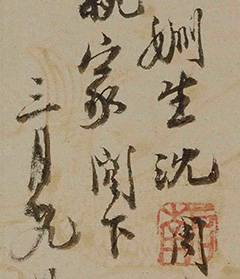 婣生沈周
親家閣下
三月九